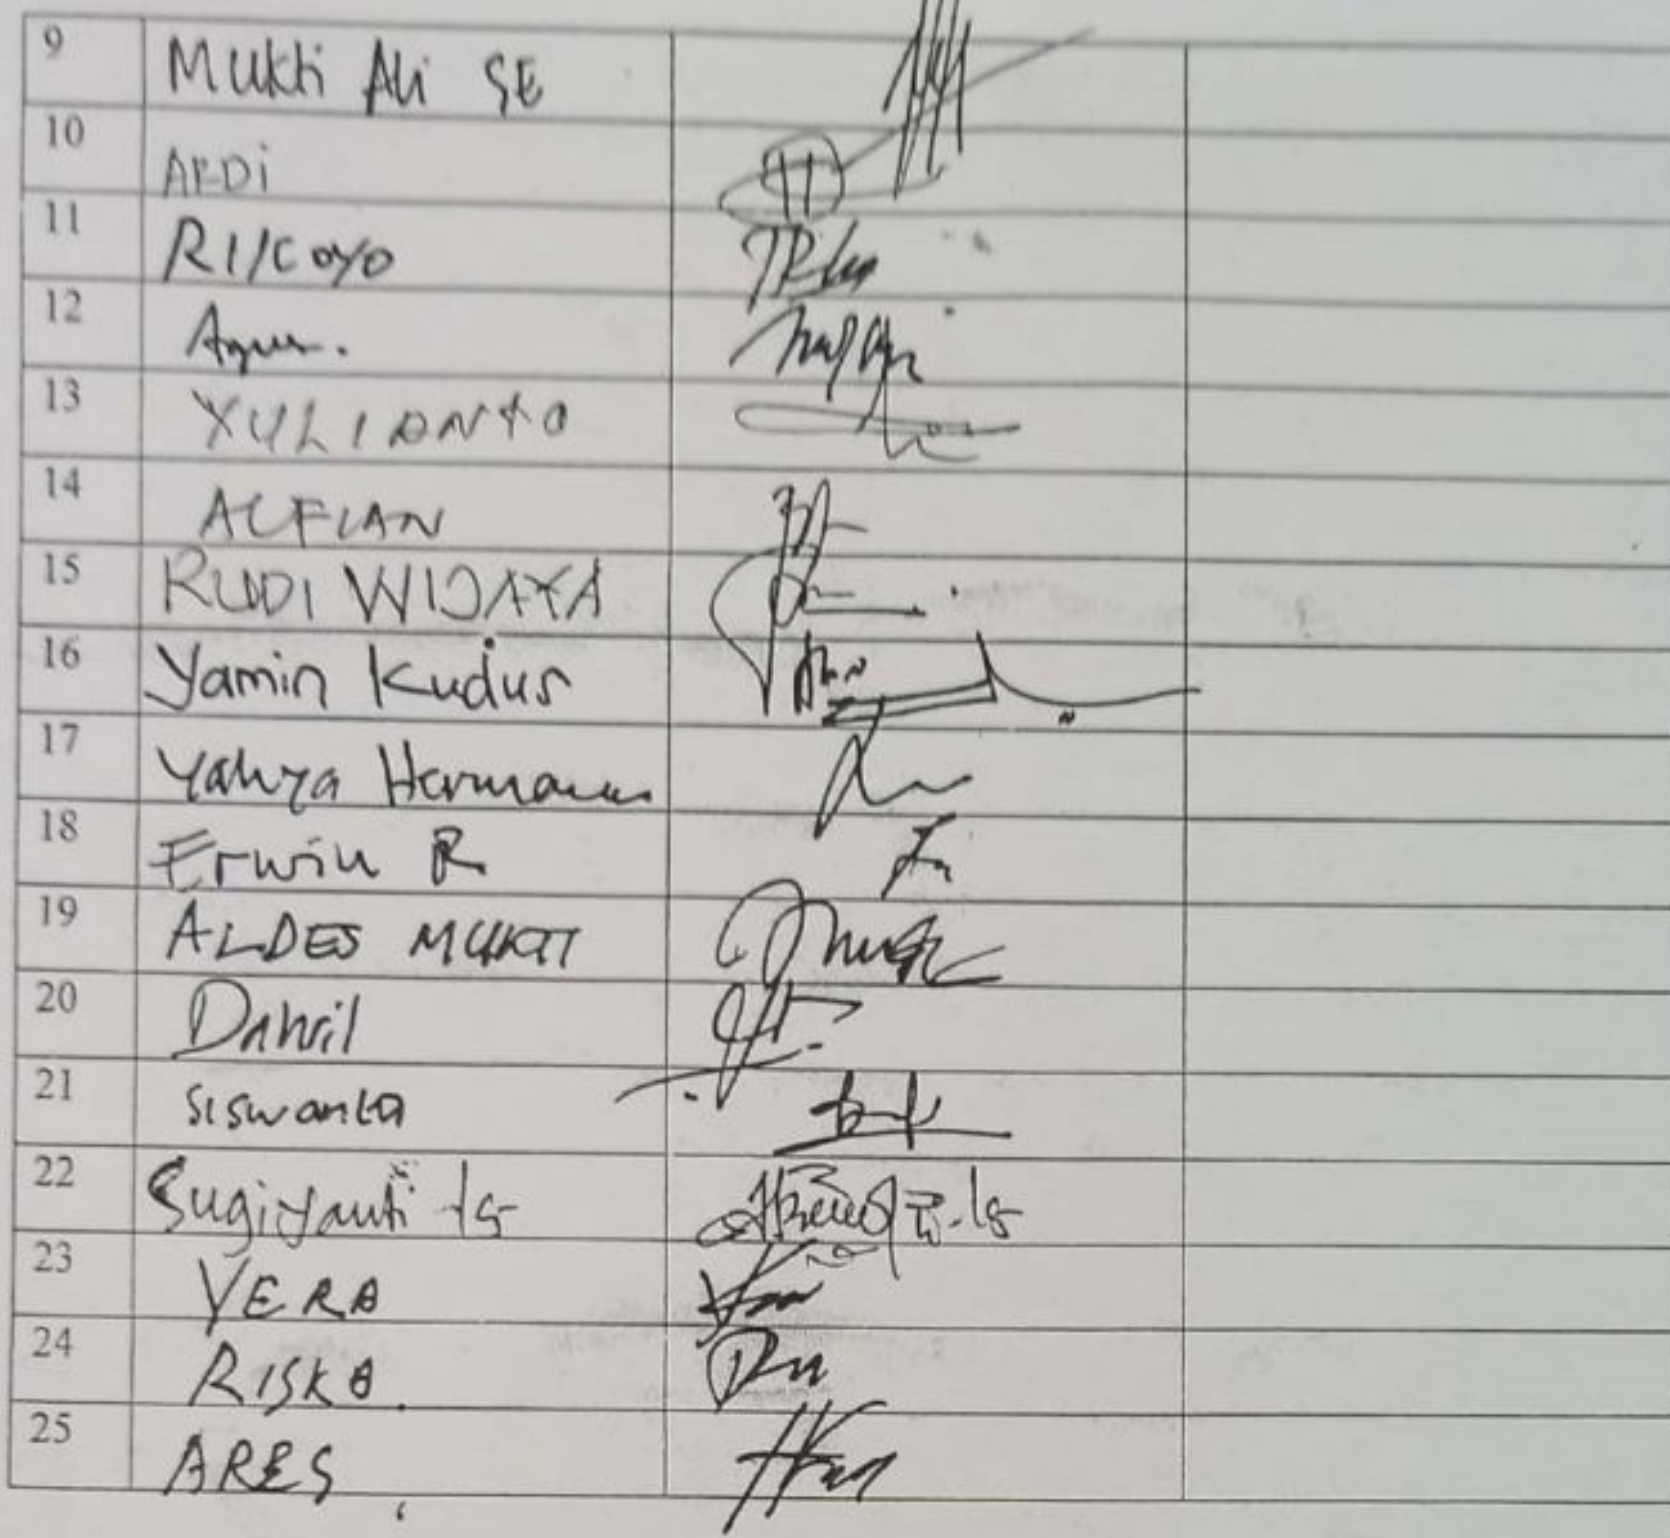 9 Mukti Ali SE
10 ARDi
11 RIKOYO
12 Agus.
13 YULIANTO
14 ALFIAN
15 RUDI WIJAYA
16 Yamin Kudus
17 Yahya Hermawan
18 Erwin R
19 ALDES MUKTI
20 Dahril
21 Siswanto
22 Sugiyanti
23 YERA
24 RISKA.
25 ARES